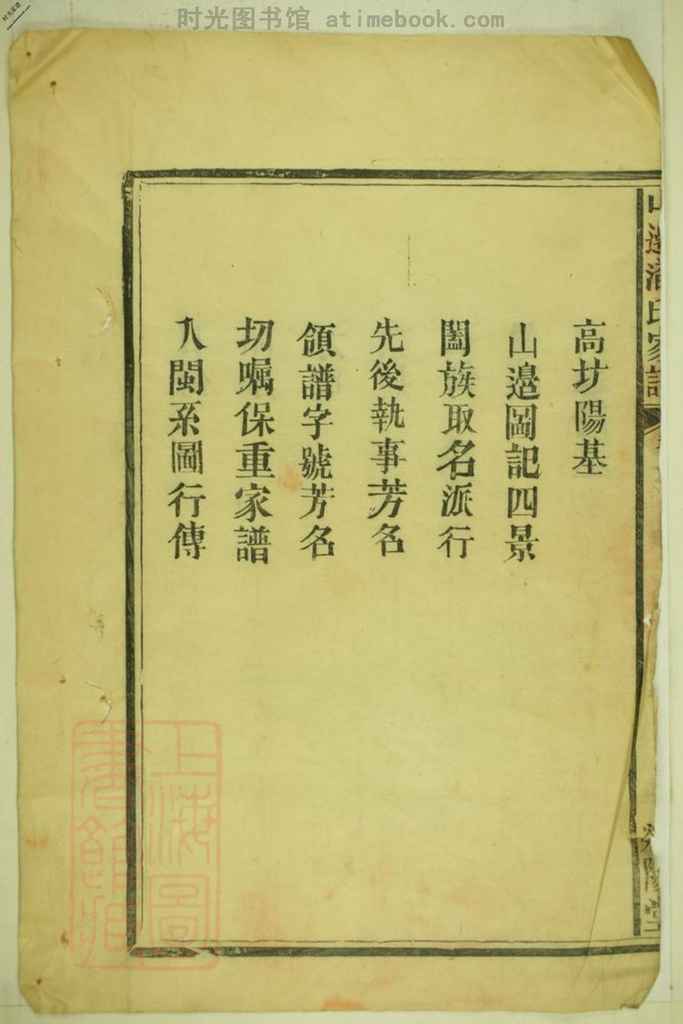 时光图书馆 atimebook.com
高圵陽基
山邉圖記四景
闔族取名派行
先後執事芳名
領譜字號芳名
切囑保重家譜
入閩系圖行傳
上海圖書館藏